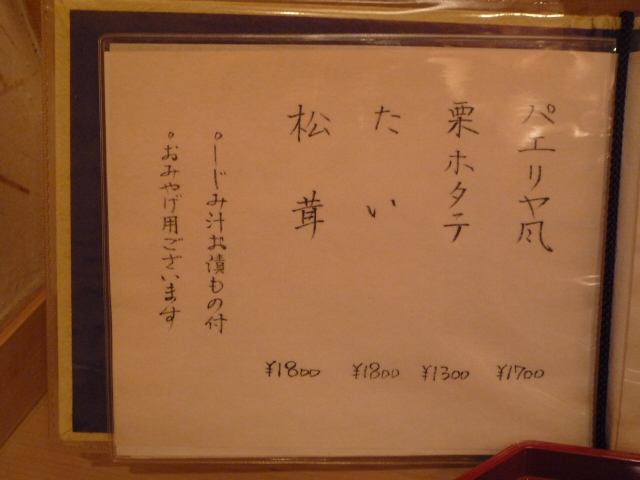 パエリヤ風 ¥1700
栗ホタテ ¥1300
たい ¥1800
松茸 ¥1800
。しじみ汁お漬もの付
。おみやげ用ございます